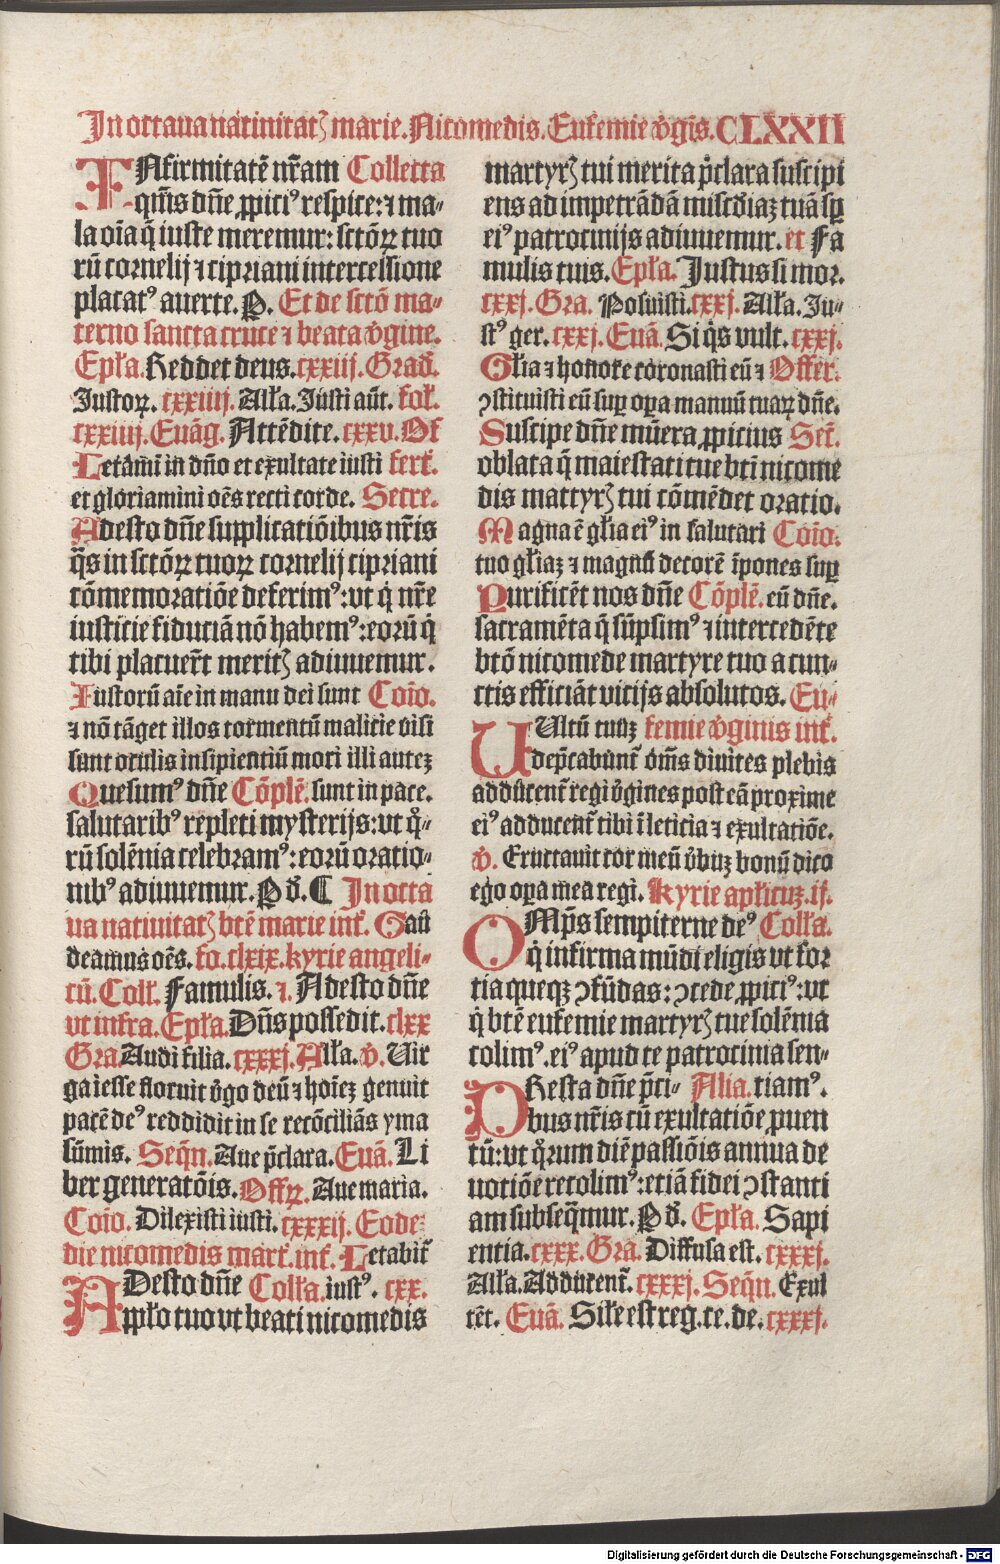 In octaua natiuitatꝭ marie. Nicomedis. Eufemie v̓gīs. CLXXII
INfirmitatē nr̄am Collecta
qm̄s dn̄e ꝓpiciꝰ respice: ⁊ ma-
la oīa q̄ iuste meremur: sctōꝝ tuo
rū cornelij ⁊ cipriani intercessione
placatꝰ auerte. P. Et de sctō ma-
terno sancta cruce ⁊ beata v̓gine.
Epła. Reddet deus. cxxiij. Grad̓.
Iustoꝝ. cxxiiij. Ałła. Justi aūt. foł.
cxxiiij. Euāg. Attēdite. cxxv. Of
Letamī in dn̄o et exultate iusti fert̄.
et gloriamini oēs recti corde. Secre.
Adesto dn̄e supplicatiōibus nr̄is
q̄s in sctōꝝ tuoꝝ cornelij cipriani
cōmemoratiōe deferimꝰ: vt q̄ nr̄e
iusticie fiduciā nō habemꝰ: eorū q̄
tibi placuer̄t meritꝭ adiuuemur.
Iustorū aīe in manu dei sunt Cōio.
⁊ nō tāget illos tormentū malicie visi
sunt oculis insipientiū mori illi autēꝫ
Quesumꝰ dn̄e Cōplē. sunt in pace.
salutaribꝰ repleti mysterijs: vt q̊-
rū solēnia celebramꝰ: eorū oratio-
nibꝰ adiuuemur. P d̓. ℂ In octa
ua natiuitatꝭ btē marie int̄. Gau
deamus oēs. fo. clxix. kyrie angeli-
cū. Coll̄. Famulis. ⁊. Adesto dn̄e
vt infra. Epła. Dn̄s possedit. clxx
Gra. Audi filia. cxxxj. Ałła. v̓. Vir
ga iesse floruit v̓go deū ⁊ hoīeꝫ genuit
pacē deꝰ reddidit in se recōciliās yma
sūmis. Seqn̄. Aue p̄clara. Euā. Li
ber generatōis. Offꝝ. Aue maria.
Cōio. Dilexisti iusti. cxxxij. Eode-
die nicomedis mart̄. int̄. Letabit̄
ADesto dn̄e Colła. iustꝰ. cxx.
ppło tuo vt beati nicomedis
martyrꝭ tui merita p̄clara suscipi
ens ad impetrādā misc̓diaꝫ tuā sꝑ
eiꝰ patrocinijs adiuuemur. et Fa
mulis tuis. Epła. Justus si mor.
cxxj. Gra. Posuisti. cxxj. Ałła. Ju-
stꝰ ger. cxxj. Euā. Si q̄s vult. cxxj.
Głia ⁊ honore coronasti eū ⁊ Offer.
ↄstituisti eū suꝑ oꝑa manuū tuaꝝ dn̄e.
Suscipe dn̄e mūera ꝓpicius Sec̄.
oblata q̄ maiestati tue bti nicome
dis martyrꝭ tui cōmēdet oratio.
Magna ē głia eiꝰ in salutari Cōio.
tuo głiaꝫ ⁊ magnū decorē īpones suꝑ
Purificēt nos dn̄e Cōplē. eū dn̄e.
sacramēta q̄ sūpsimꝰ ⁊ intercedēte
btō nicomede martyre tuo a cun-
ctis efficiāt vicijs absolutos. Eu-
VUltū tuuꝫ femie v̓ginis int̄.
dep̄cabunt̄ om̄s diuites plebis
adducent̄ regi v̓gines post eā proxime
eiꝰ adducent̄ tibi ī leticia ⁊ exultatiōe.
v̓. Eructauit cor meū v̓buꝫ bonū dico
ego oꝑa mea regi. Kyrie apłicuꝫ. is.
OMps̄ sempiterne deꝰ Colła.
q̄ infirma mūdi eligis vt for
tia queqꝫ ↄfūdas: ↄcede ꝓpiciꝰ: vt
q̄ btē eufemie martyrꝭ tue solēnia
colimꝰ. eiꝰ apud te patrocinia sen-
PResta dn̄e p̄ci- Alia. tiamꝰ.
bus nr̄is cū exultatiōe ꝓuen
tū: vt q̊rum diē passiōis annua de
uotiōe recolimꝰ: etiā fidei ↄstanti
am subseq̄mur. P d̓. Epła. Sapi
entia. cxxx. Gra. Diffusa est. cxxxj.
Ałła. Adducent̄. cxxxj. Seqn̄. Exul
tēt. Euā. Siłe est reg. ce. de. cxxxj.
Digitalisierung gefördert durch die Deutsche Forschungsgemeinschaft - DFG